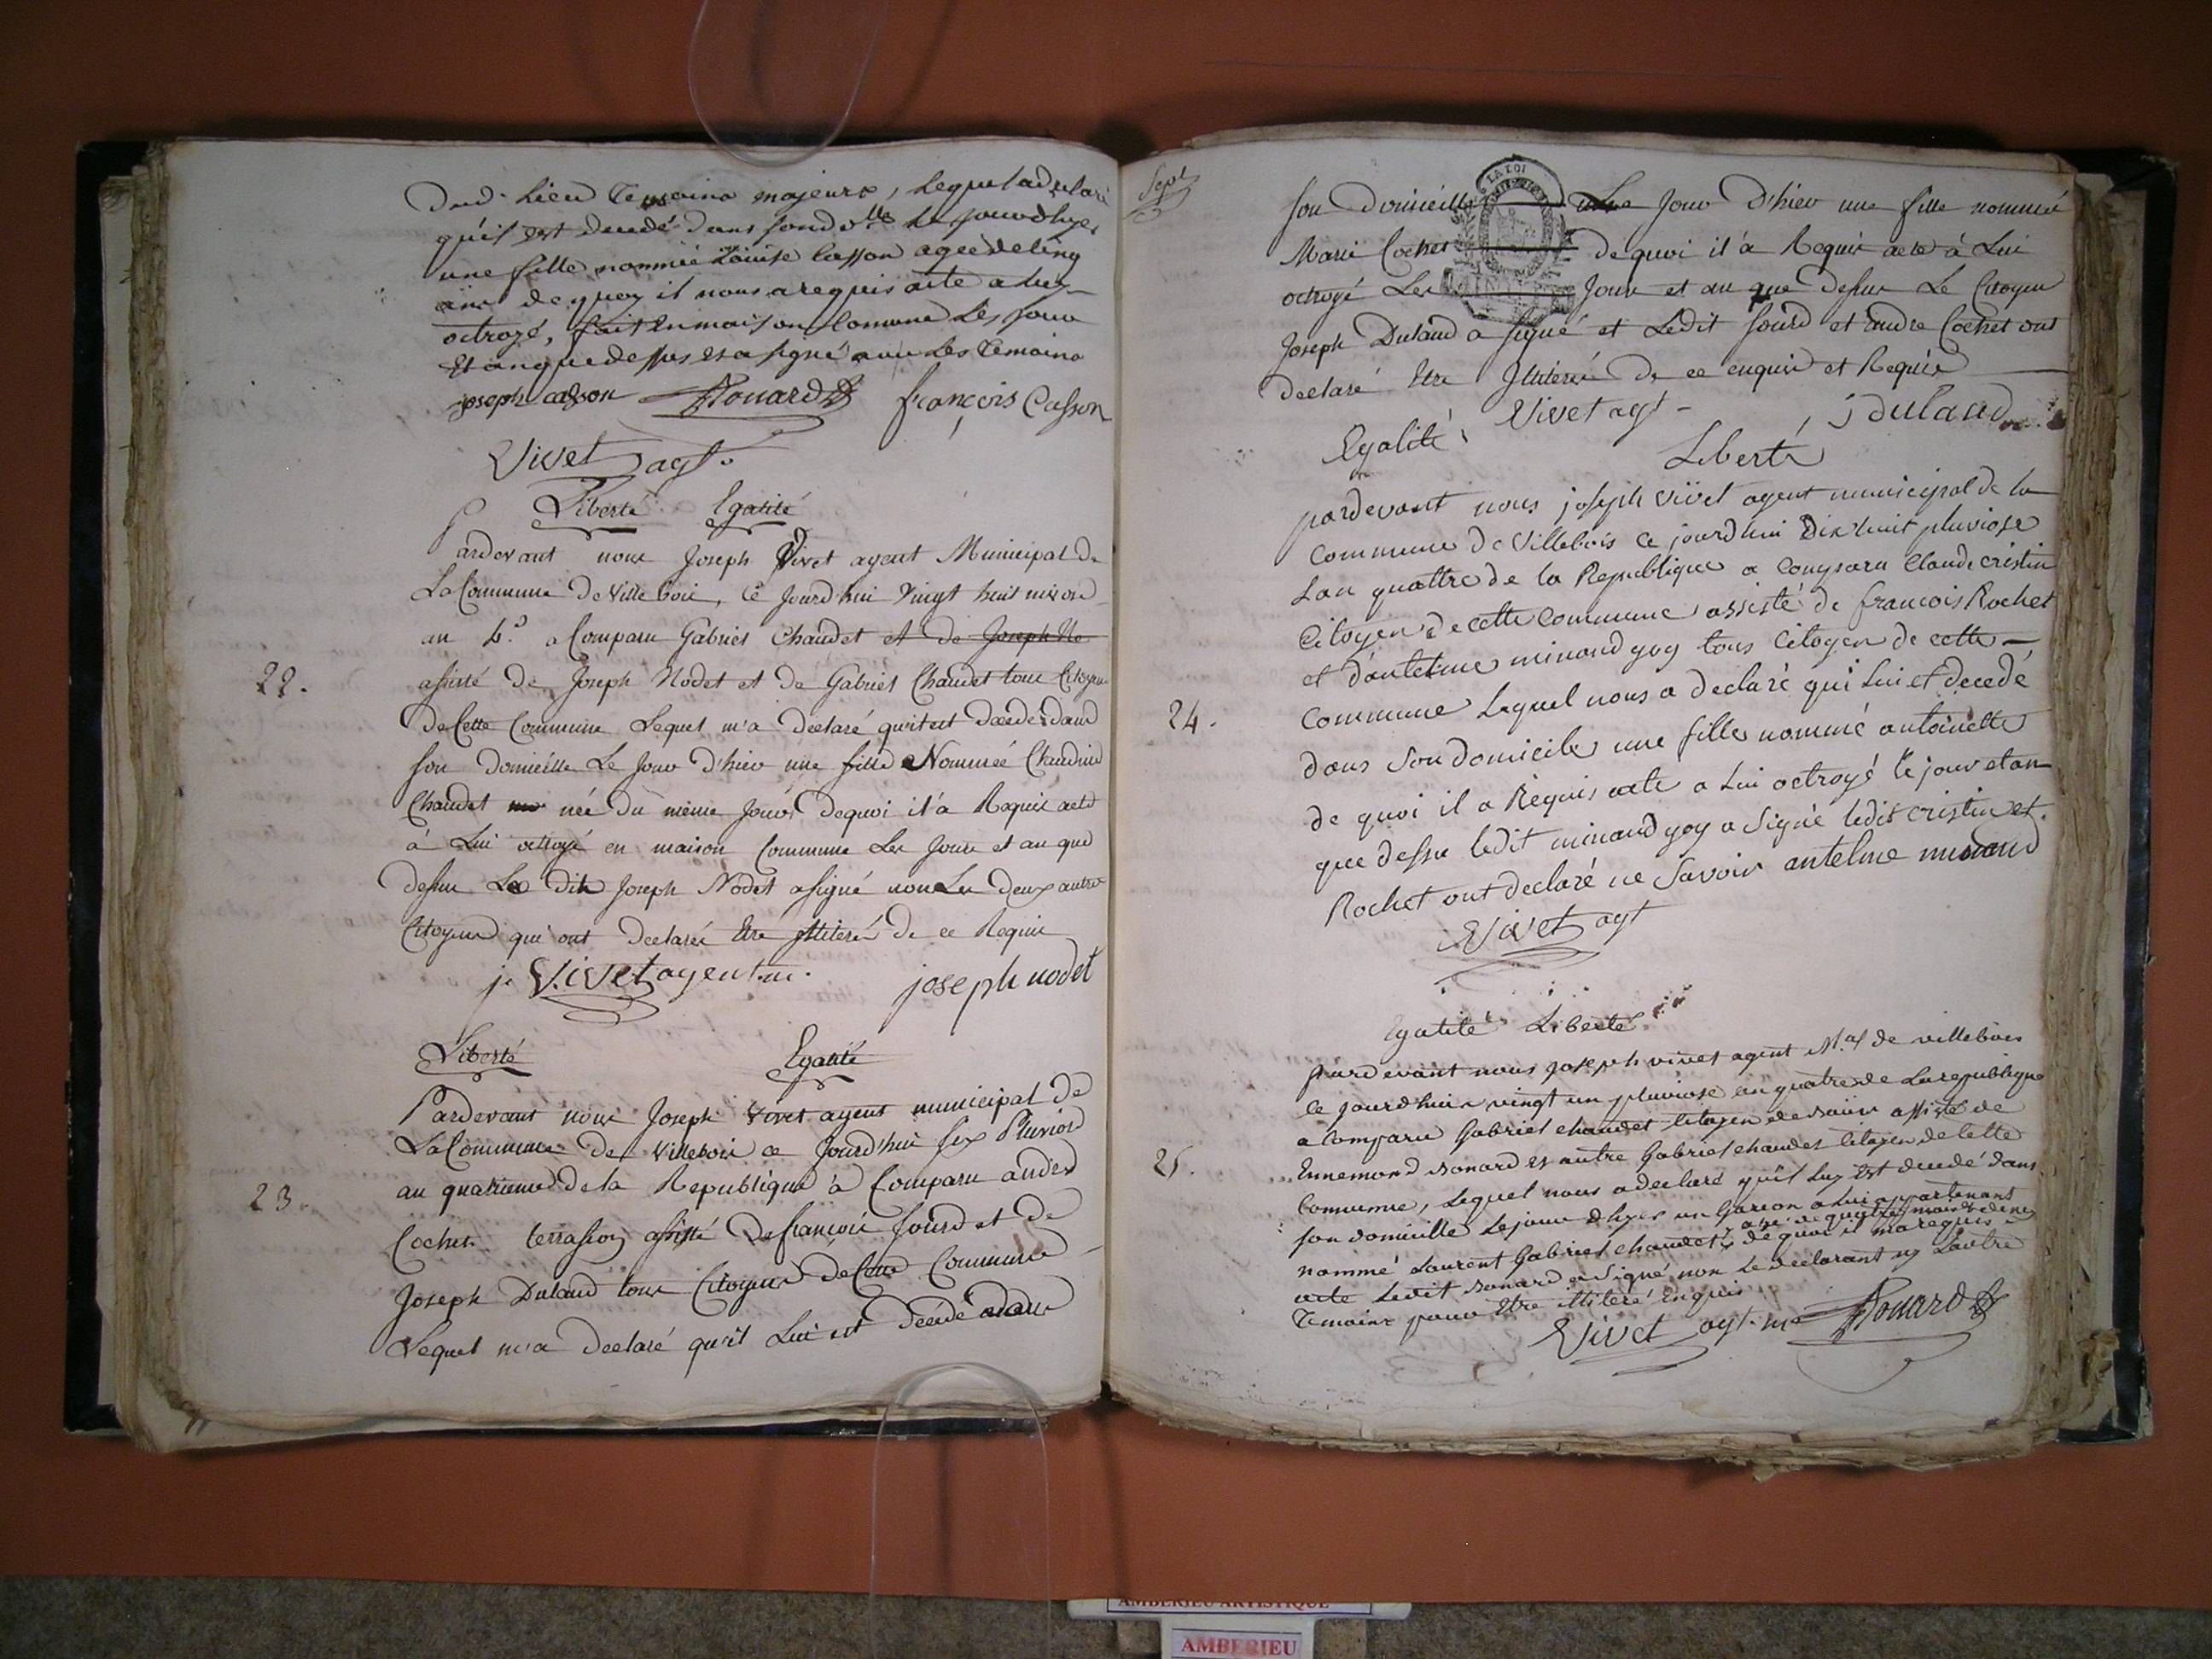 Dud. Lieu Temoins majeurs, Lequel a declaré
qu'il est decedé dans son d.lle le jour d'hyer
une fille nommée Louise Casson agée de cinq
ans de quoy il nous a requis acte a luy
octroyé, fait en maison Comune Les jour
Et an que dessus et a signé avec Les Temoins
joseph casson Bonard françois Casson
Vivet agt.
Liberté Egalité
Pardevant nous Joseph Vivet agent Municipal de
La Commune de Villebois, ce Jourd'hui Vingt huit nivose
an 4.e a Comparu Gabriel Chaudet et de Joseph No
22.
assisté de Joseph Nodet et de Gabriel Chaudet tous Citoyens
de Cette Commune Lequel m'a declaré qu'il est decedé dans
son domicille Le Jour d'hier une fille Nommée Claudine
Chaudet née du même Jour dequoi il a Requis acte
à Lui octroyé en maison Commune Les Jour et an que
dessus Le dit Joseph Nodet a signé non Les deux autres
Citoyens qui ont declarés Etre Illiteré de ce Requis
j. Vivet agent m. joseph nodet
Liberté Egalité
Pardevant nous Joseph Vivet agent municipal de
La Commune de Villebois ce Jourd'hui six Pluviose
an quatrieme de la Republique à Comparu andré
23.
Cochet terrasson assisté de françois sourd et de
Joseph Dulaud tous Citoyens de Cette Commune
Lequel m'a declaré qu'il Lui est decedé dans
Sept
LA LOI
son domicille Le Jour d'hier une fille nommée
Marie Cochet de quoi il a Requis acte à Lui
octroyé Les Jour et an que dessus Le Citoyen
Joseph Dulaud a signé et Ledit sourd et andre Cochet ont
declaré Etre Illiteré de ce enquis et Requis
Vivet agt J dulaud
Egalité Liberté
pardevant nous joseph vivet agent municipal de la
Commune de Villebois ce jourd'hui Dix huit pluviose
Lan quattre de la Republique a comparu Claude cristin
Citoyen de cette commune assisté de francois Rochet
et d'antelme minand goy tous Citoyen de cette
24.
Commune Lequel nous a declaré qui lui et decedé
dans son domicile une fille nommé antoinette
de quoi il a Requis acte a Lui octroyé le jour et an
que dessu ledit minand goy a signé ledit cristin et
Rochet ont declaré ne savoir antelme minand
Vivet agt
Egatité Liberté
pardevant nous joseph vivet agent M.al de villebois
ce jourdhuis vingt un pluviose an quatre de La republique
a Comparu Gabriel chaudet Citoyen de assisté de
Ennemond Bonard et autre Gabriel chaudet Citoyen de Cette
25.
Commune, Lequel nous a declaré qu'il Luy Est decedé dans
son domicille Le jour dhyer un Garcon a Lui appartenant
agé de quatre mois
nommé Laurent Gabriel chaudet, de quoi il m'a requis
acte Ledit Bonard a signé non Le declarant ny L'autre
Temoins pour Etre illiteré Enquis
Vivet agt. m Bonard
AMBERIEU ARTISTIQUE
AMBERIEU